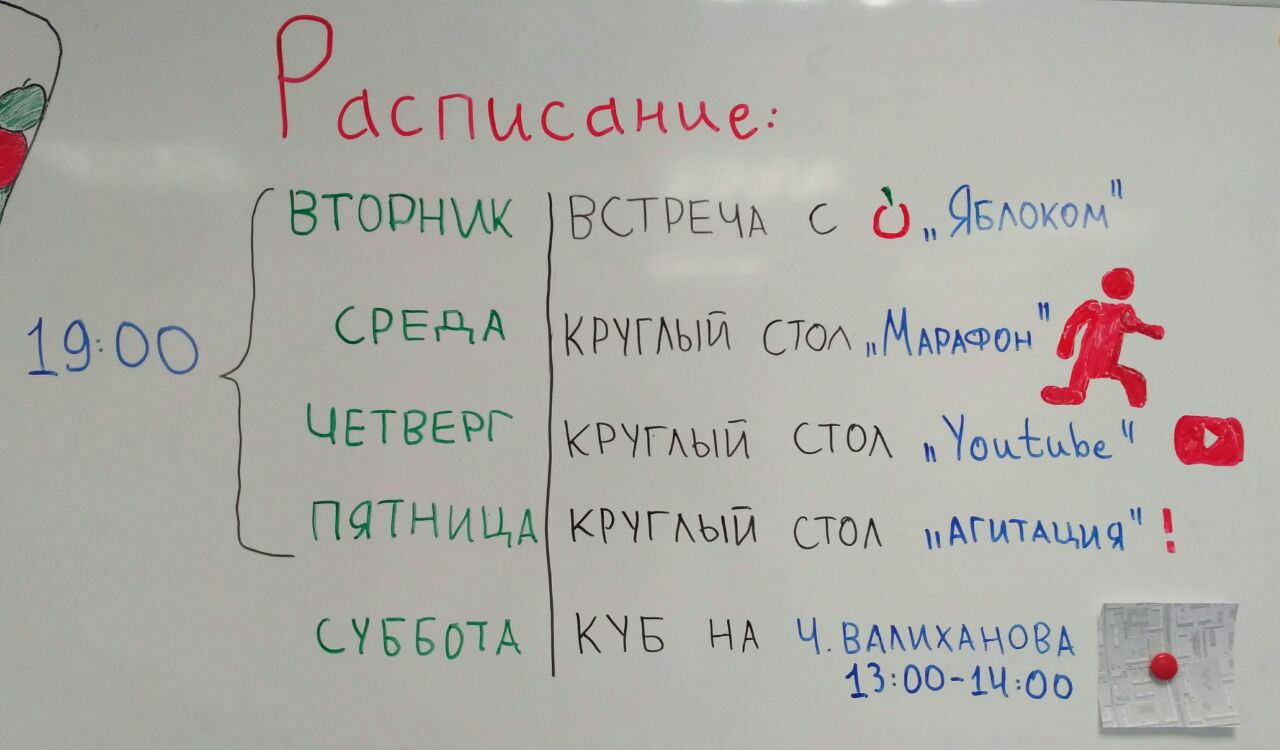 Расписание:
19:00
ВТОРНИК ВСТРЕЧА С „Яблоком"
СРЕДА КРУГЛЫЙ СТОЛ „Марафон"
ЧЕТВЕРГ КРУГЛЫЙ СТОЛ „Youtube"
ПЯТНИЦА КРУГЛЫЙ СТОЛ „АГИТАЦИЯ"!
СУББОТА КУБ НА Ч. ВАЛИХАНОВА
13:00-14:00